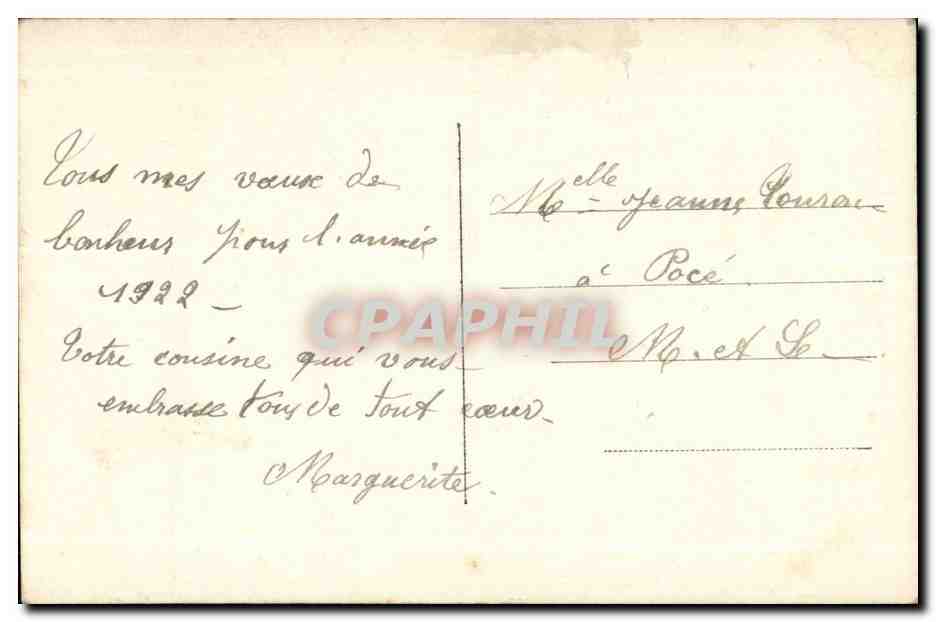 Tous mes vœux de
bonheur pour l'année
1922 -
Votre cousine qui vous
embrasse tous de tout cœur -
Marguerite.
Melle - Jeanne
à Pocé.
M. et Le -
CPAPHIL